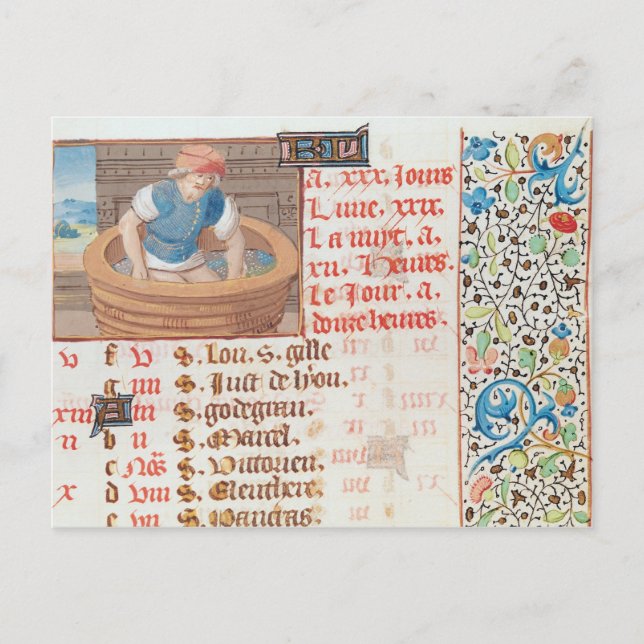 a. xxx. Jours
Lune. xxix.
La nuyt. a.
xii. Heures.
Le Jour. a.
douze heures.
v f v S. Lou. S. gille
g iiii S. Just de lyon.
xiii A iii S. godegran.
ii b ii S. Marcel.
c S. Victorien.
x d viii S. Eleuthere.
e vii S. Pancras.